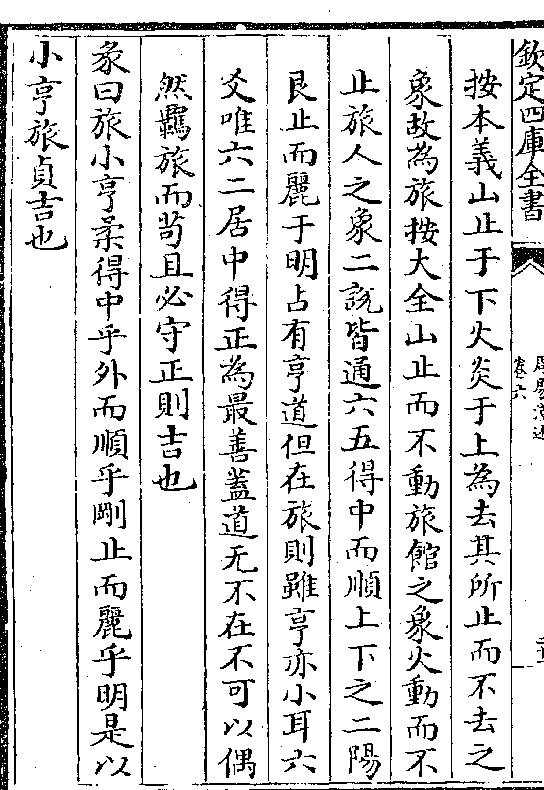 欽定四庫全書
卷六
按本義山止于下火炎于上為去其所止而不去之
象故為旅按大全山止而不動旅館之象火動而不
止旅人之象二説皆通六五得中而順上下之二陽
艮止而麗于明占有亨道但在旅則雖亨亦小耳六
爻唯六二居中得正為最善蓋道无不在不可以偶
然羈旅而茍且必守正則吉也
彖曰旅小亨柔得中乎外而順乎剛止而麗乎明是以
小亨旅貞吉也